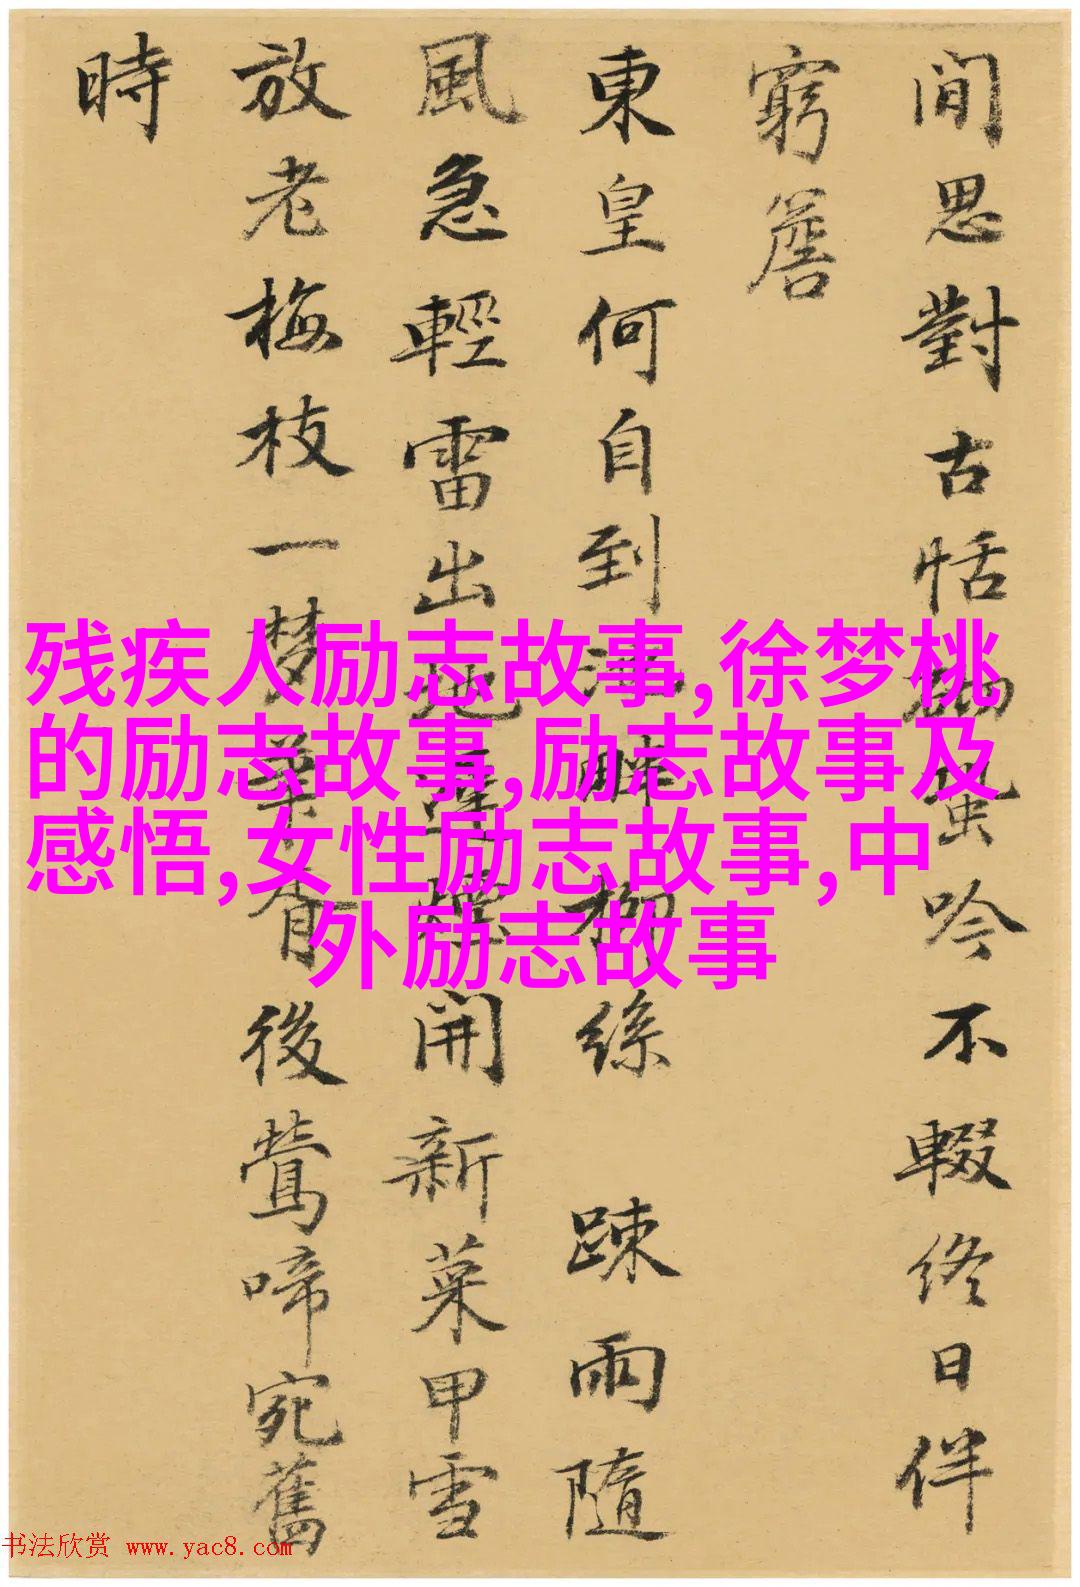 閒思對古恬 蛩吟不輟終日伴
窮簷
東皇何自到 柳絲疎雨隨
風急輕雷出地 開新菜甲雪
放老梅枝一梦 後鶯啼宛舊
時
残疾人励志故事,徐梦桃
的励志故事,励志故事及
感悟,女性励志故事,中
外励志故事
书法欣赏 www.yac8.com